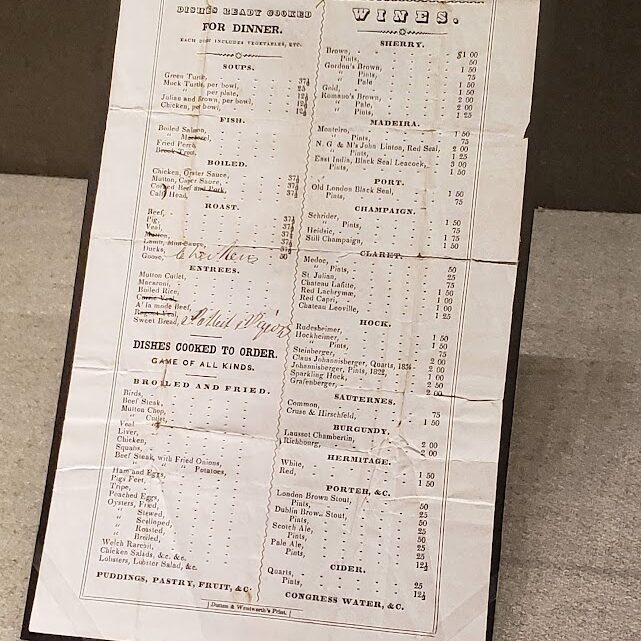 DISHES READY COOKED
FOR DINNER.
EACH DISH INCLUDES VEGETABLES, ETC.
SOUPS.
Green Turtle, 37½
Mock Turtle, per bowl, 25
" per plate, 12½
Julian and Brown, per bowl, 12½
Chicken, per bowl, 12½
FISH.
Boiled Salmon,
" Mackerel,
Fried Perch,
Brook Trout,
BOILED.
Chicken, Oyster Sauce, 37½
Mutton, Caper Sauce, 37½
Corned Beef and Pork, 37½
Calf Head, 37½
ROAST.
Beef, 37½
Pig, 37½
Veal, 37½
Mutton, 37½
Lamb, Mint Sauce, 37½
Ducks,
Goose, Chicken 50
ENTREES.
Mutton Cutlet,
Macaroni,
Boiled Rice,
Curric Veal,
A'la mode Beef,
Ragout Veal,
Sweet Bread,
DISHES COOKED TO ORDER.
GAME OF ALL KINDS.
BROILED AND FRIED.
Birds,
Beef Steak,
Mutton Chop,
" Cutlet,
Veal "
Liver,
Chicken,
Squabs,
Beef Steak, with Fried Onions,
" " " Potatoes,
Ham and Eggs,
Pigs Feet,
Tripe,
Poached Eggs,
Oysters, Fried,
" Stewed,
" Scolloped,
" Roasted,
" Broiled,
Welch Rarebit,
Chicken Salads, &c. &c.
Lobsters, Lobster Salad, &c.
PUDDINGS, PASTRY, FRUIT, &C.
WINES.
SHERRY.
Brown, $1 00
Pints, 50
Gordon's Brown, 1 50
" Pints, 75
" Pale 1 50
Gold, 1 50
Romano's Brown, 2 00
" Pale, 2 00
" Pints, 1 25
MADEIRA.
Monteiro, 1 50
" Pints, 75
N. G & M's John Linton, Red Seal, 2 00
" Pints, 1 25
East India, Black Seal Leacock, 3 00
" Pints, 1 50
PORT.
Old London Black Seal, 1 50
" Pints, 75
CHAMPAIGN.
Schrider, 1 50
" Pints, 75
Heidsic, 1 50
Still Champaign, 1 50
CLARET.
Medoc, 50
" Pints, 25
St. Julian, 75
Chateau Lafitte, 1 50
Red Lachrymæ, 1 00
Red Capri, 1 00
Chateau Leoville, 1 25
HOCK.
Rudesheimer, 1 50
Hockheimer, 1 50
" Pints, 75
Steinberger, 2 00
Claus Johannisberger, Quarts, 1834 2 00
Johannisberger, Pints, 1822, 2 00
Sparkling Hock, 1 00
Grafenberger, 2 50
SAUTERNES. 2 00
Common, 75
Cruse & Hirschfeld, 1 50
BURGUNDY.
Laussot Chambertin, 2 00
Richbourg, 2 00
HERMITAGE.
White, 1 50
Red, 1 50
PORTER, &C.
London Brown Stout, 50
Pints, 25
Dublin Brown Stout, 50
Pints, 25
Scotch Ale, 50
Pints, 25
Pale Ale, 25
Pints, 12½
CIDER.
Quarts, 25
Pints, 12½
CONGRESS WATER, &C.
Dutton & Wentworth's Print.